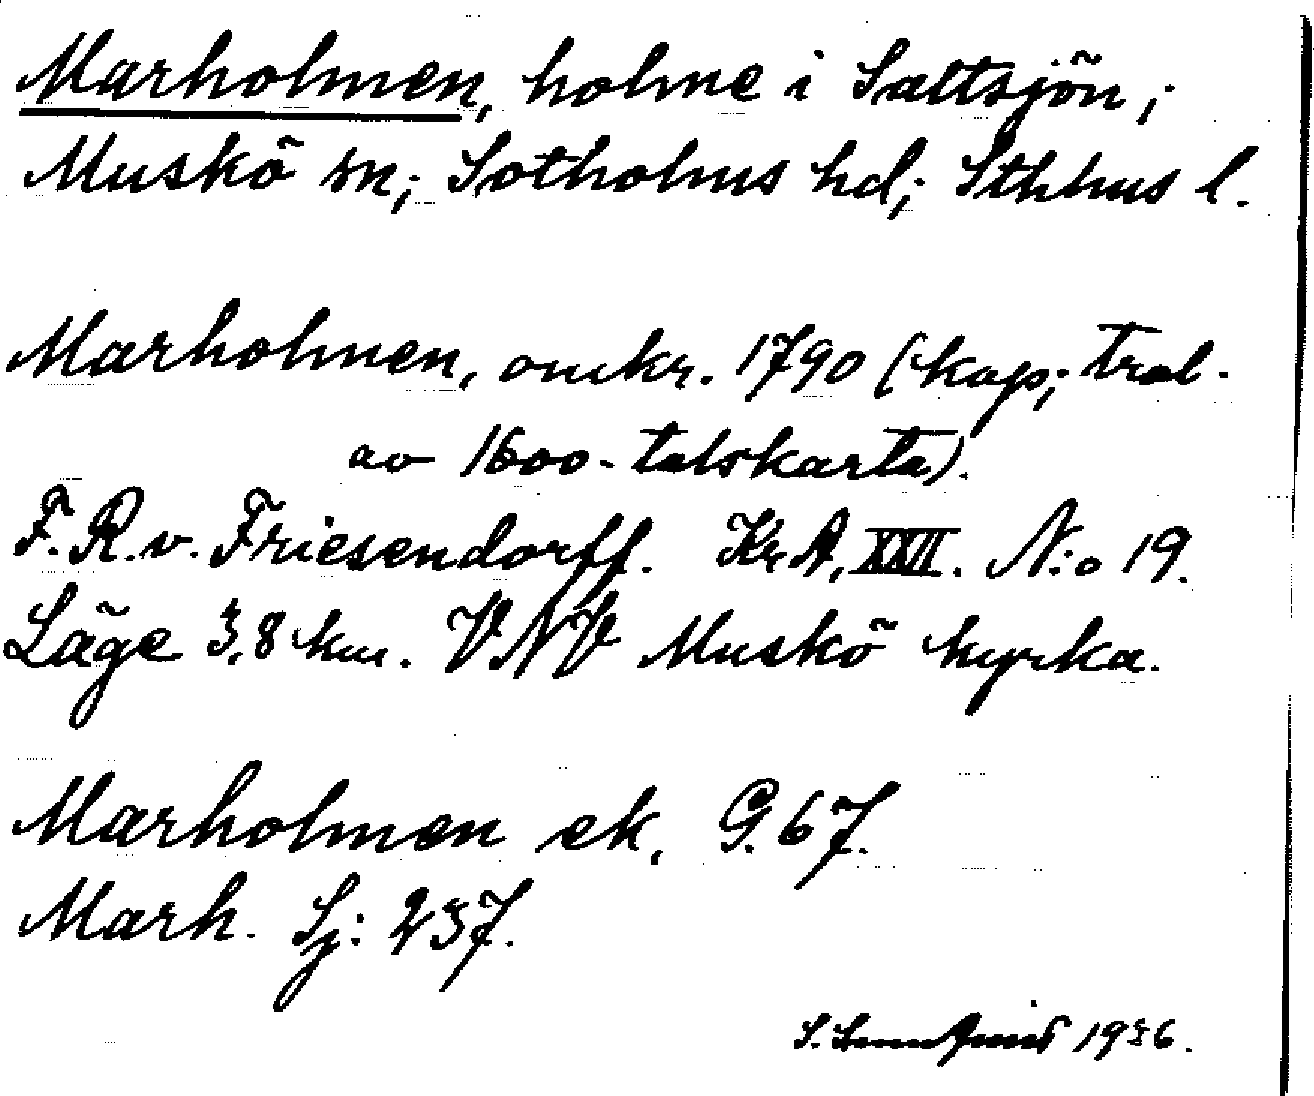 Marholmen, holme i Saltsjön;
Muskö sn; Sotholms hd; Sthlms l.
Marholmen, omkr. 1790 (kop; trol.
av 1600-talskarta).
F. R. v. Friesendorff. Kr.A. XXII. N:o 19.
Läge 3,8 km. VNV Muskö kyrka.
Marholmen ek. G. 67.
Marh. Sj: 237.
S. 1936.